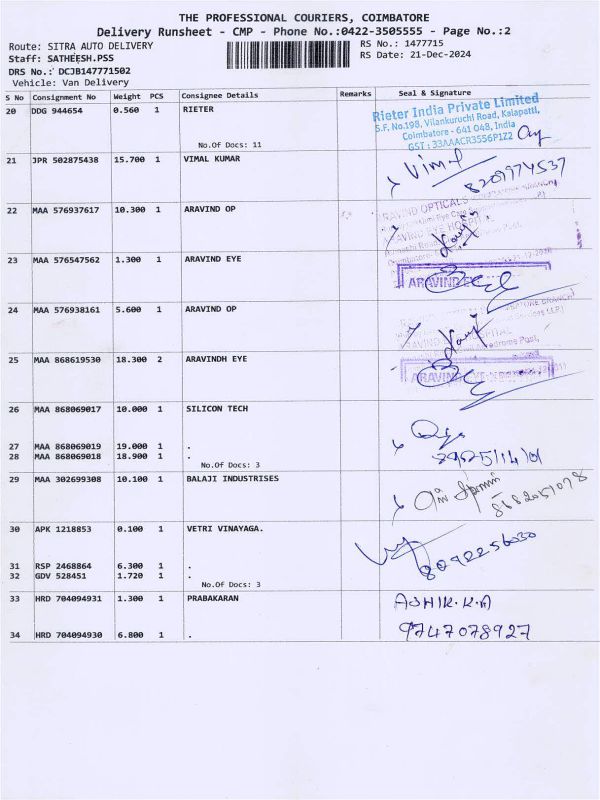 THE PROFESSIONAL COURIERS, COIMBATORE
Delivery Runsheet - CMP - Phone No.:0422-3505555 - Page No.:2
Route: SITRA AUTO DELIVERY
RS No.: 1477715
Staff: SATHEESH.PSS
RS Date: 21-Dec-2024
DRS No.: DCJB147771502
Vehicle: Van Delivery
S No Consignment No Weight PCS Consignee Details Remarks Seal & Signature
20 DDG 944654 0.560 1 RIETER
Rieter India Private Limited
S.F. No.198, Vilankuruchi Road, Kalapatti,
Coimbatore - 641 048, India
GST : 33AAACR3556P1Z2
No.Of Docs: 11
21 JPR 502875438 15.700 1 VIMAL KUMAR
Vimal
8209974537
22 MAA 576937617 10.300 1 ARAVIND OP
ARAVIND OPTICALS
ARAVIND EYE HOSPITAL
23 MAA 576547562 1.300 1 ARAVIND EYE
ARAVIND
24 MAA 576938161 5.600 1 ARAVIND OP
25 MAA 868619530 18.300 2 ARAVINDH EYE
ARAVIND EYE
26 MAA 868069017 10.000 1 SILICON TECH
27 MAA 868069019 19.000 1 .
28 MAA 868069018 18.900 1 .
No.Of Docs: 3
29 MAA 302699308 10.100 1 BALAJI INDUSTRISES
30 APK 1218853 0.100 1 VETRI VINAYAGA.
31 RSP 2468864 6.300 1 .
32 GDV 528451 1.720 1 .
No.Of Docs: 3
33 HRD 704094931 1.300 1 PRABAKARAN
ASHIK.K.A
34 HRD 704094930 6.800 1 .
9747078927